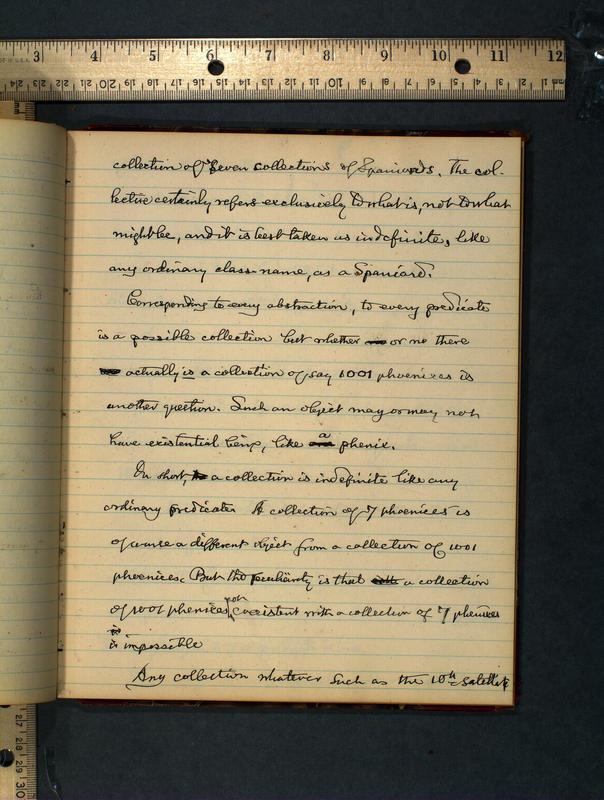 collection of seven collections of Spaniards. The col-
lective certainly refers exclusively to what is, not to what
might be, and it is best taken as indefinite, like
any ordinary class-name, as a Spaniard.
Corresponding to every abstraction, to every predicate
is a possible collection but whether or no there
actually is a collection of say 1001 phoenixes is
another question. Such an object may or may not
have existential being, like a phenix.
In short, a collection is indefinite like any
ordinary predicate. A collection of 7 phoenices is
of course a different object from a collection of 1001
phoenices. But the peculiarity is that a collection
of 1001 phenices not coexistent with a collection of 7 phenixes
is impossible
Any collection whatever such as the 10th satellite
3 4 5 6 7 8 9 10 11 12